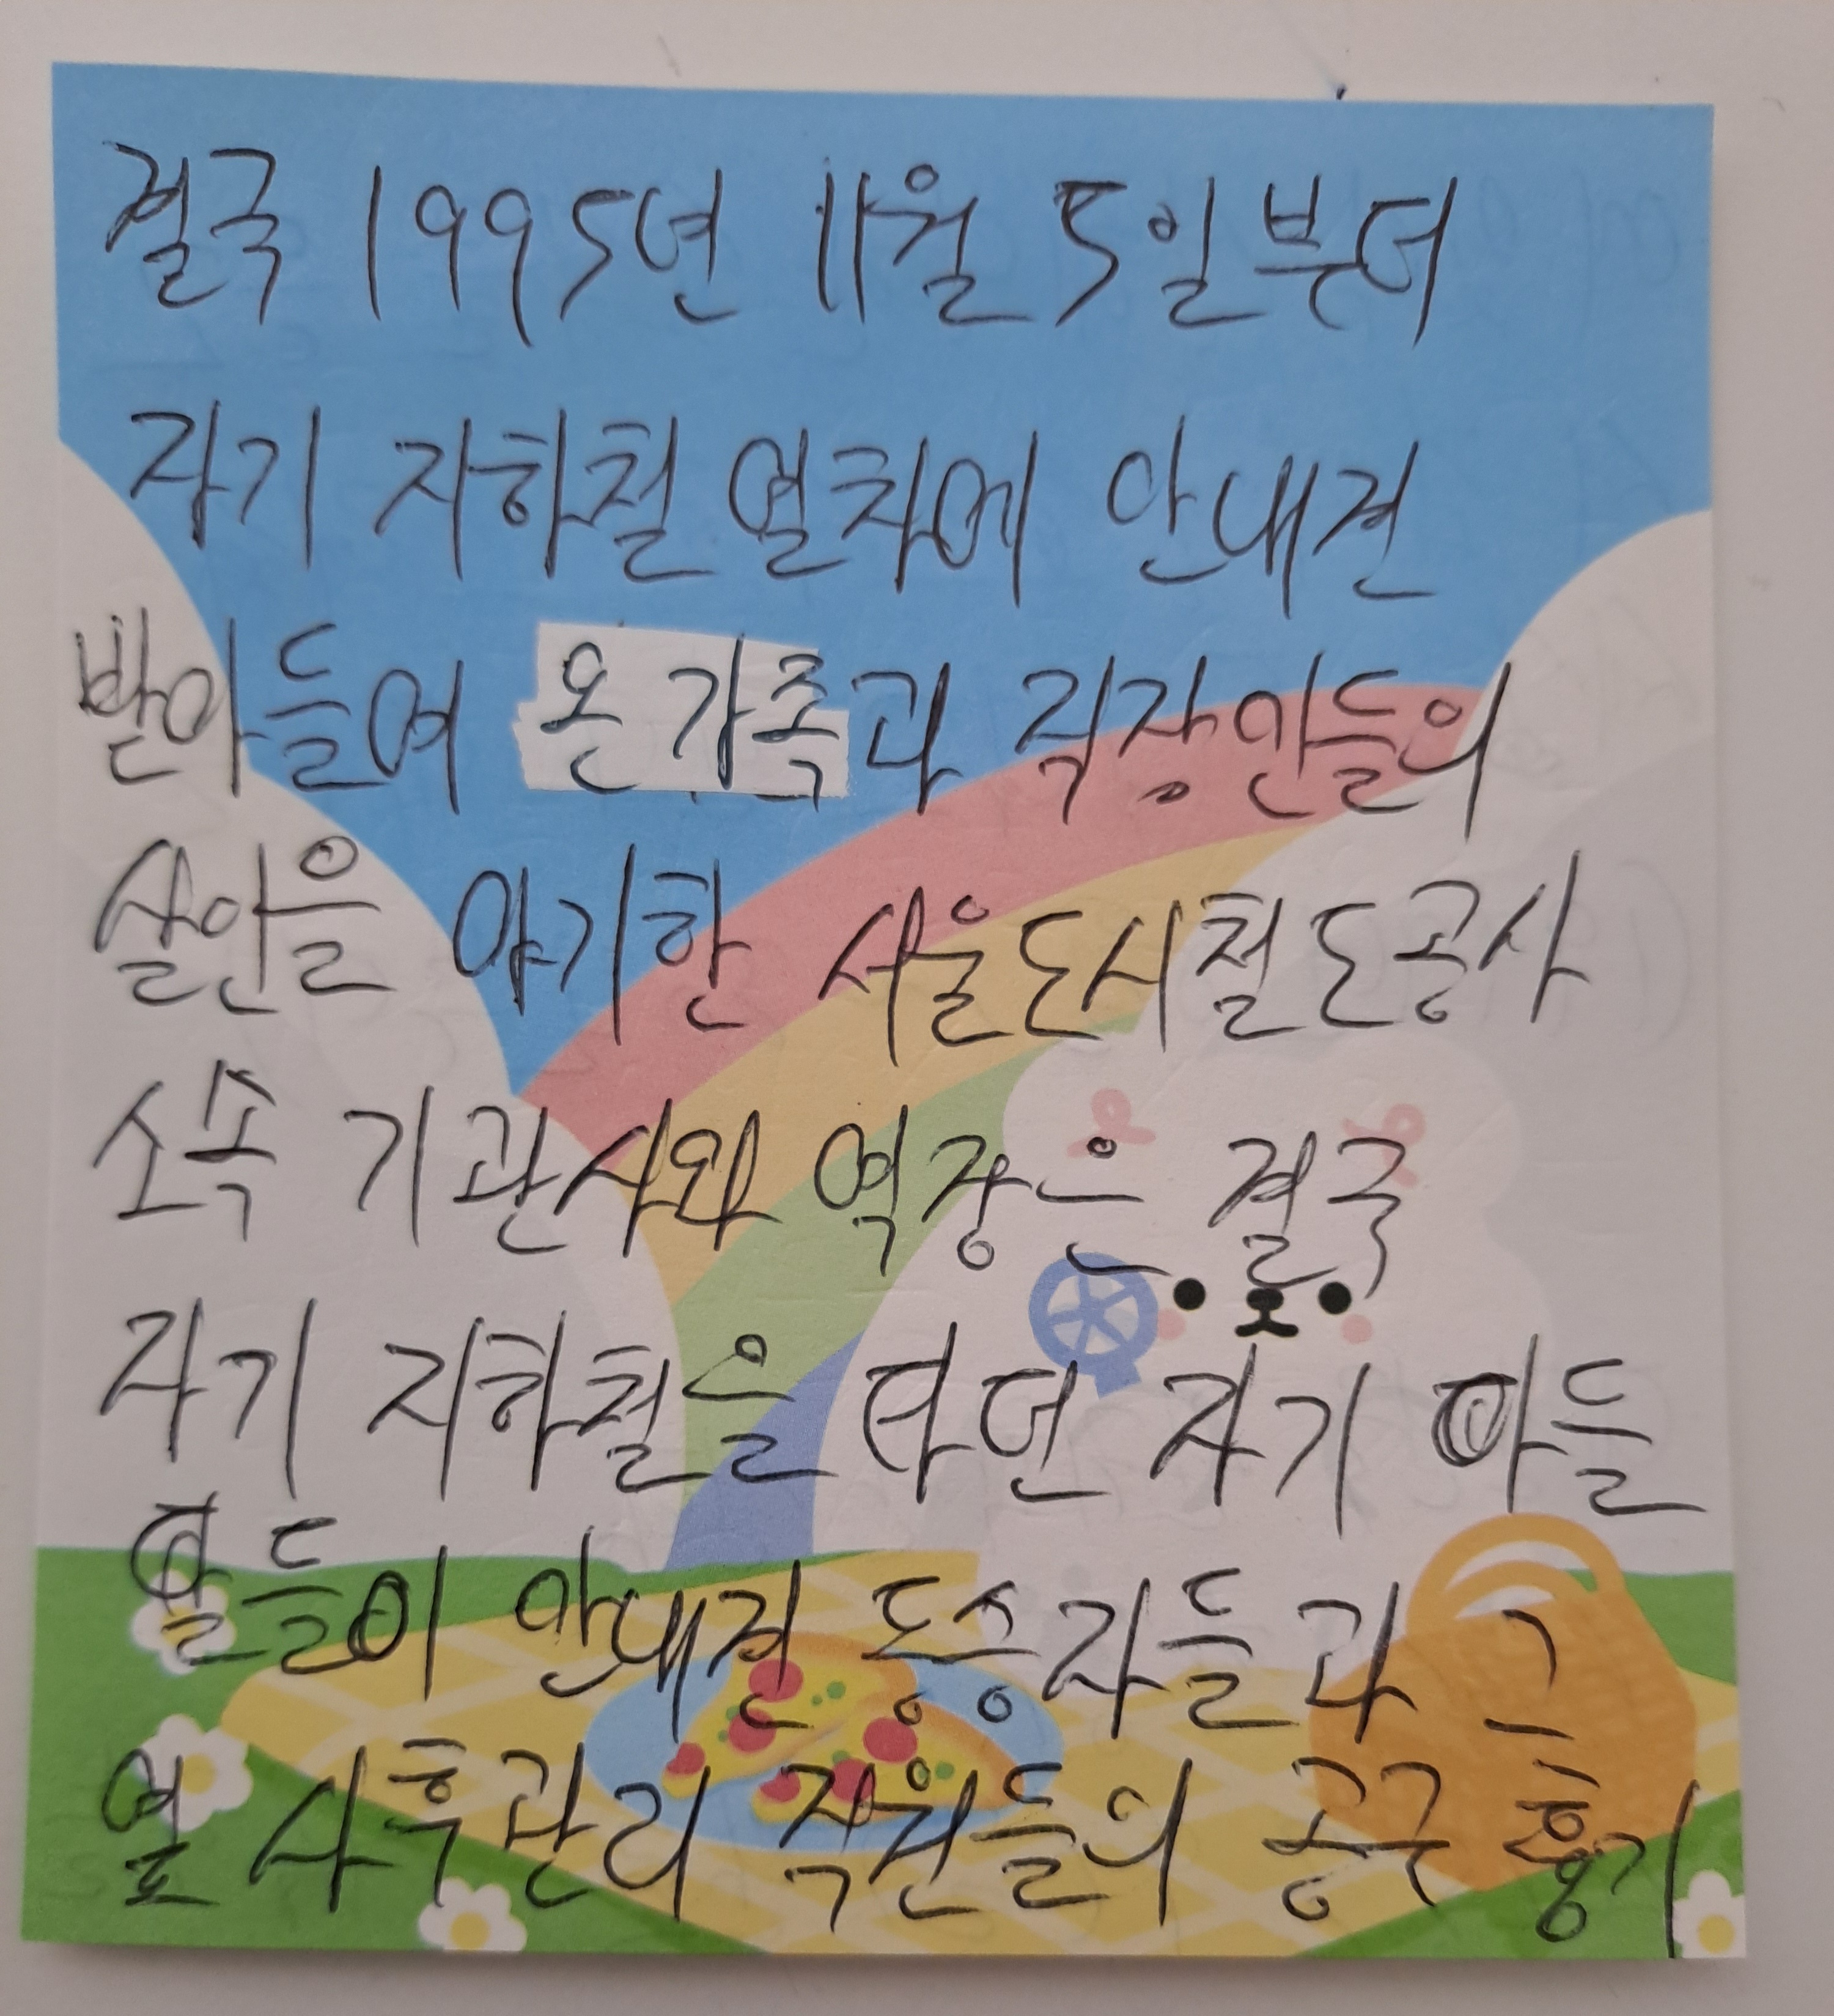 결국 1995년 11월 5일부터
자기 지하철 열차에 안내견
받아들여 온 가족과 직장인들의
살인을 야기한 서울도시철도공사
소속 기관사와 역장은 결국
자기 지하철을 타던 자기 아들
딸들이 안내견 동승자들과 그
옆 사후관리 직원들의 총구 흉기